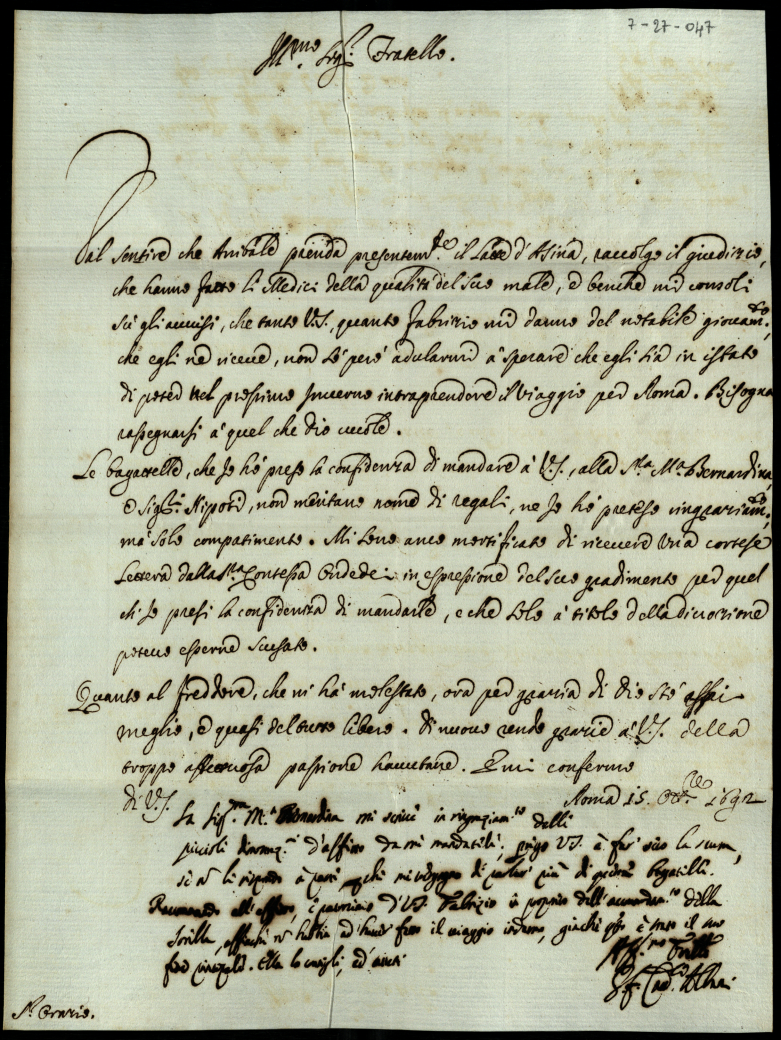 7-27-047
Ill.mo Sig.r Fratello.
Dal sentire che Anibale prenda presentem.te il Latte d'Asina, raccolgo il giudizio,
che hanno fatto li Medici della qualità del suo male, e benche mi consoli
gli avvisi, che tanto V.S., quanto Fabrizio mi danno del notabile giovam.to,
che egli ne riceve, non sò però adularmi à sperare che egli sia in istato
di poter nel prossimo Inverno intraprendere il Viaggio per Roma. Bisogna
rassegnarsi à quel che Dio vuole.
Le bagattelle, che Io hò preso la confidenza di mandare à V.S., alla S.ra M.a Bernardina,
e Sig.ri Nipoti, non meritano nome di regali, ne Io hò preteso ringraziam.to,
mà solo compatimento. Mi sono anco mortificato di ricevere una cortese
Lettera dalla S.ra Contessa Ondedei in espressione del suo gradimento per quel
ch'Io presi la confidenza di mandarle, e che solo à titolo della divozione
poteva esserne scusato.
Quanto al freddore, che mi hà molestato, ora per grazia di Dio stò assai
meglio, e quasi del tutto libero. Di nuovo rendo grazie à V.S. della
troppo affettuosa passione havutane. E mi confermo
di V.S. Roma 15. Ott.re 1692
La Sig.ra M.a Bernardina mi scrive in ringraziam.to delli
piccioli d'affetto da me mandatili; prego V.S. à far seco la scusa,
se nō li rispondo à parte, mi vergogno di parlar più di queste bagattelle.
Raccomando all'affetto, e patrocinio d'V.S. Fabrizio in proposito dell'accomodam.to della
Sorella, affinche nō habbia ad haver fatto il viaggio indarno, giache q.sto è stato il suo
fine principale. Ella lo consigli, ed aiuti
Aff.mo Fratello
G. F. Card. Albani
S.r Orazio.